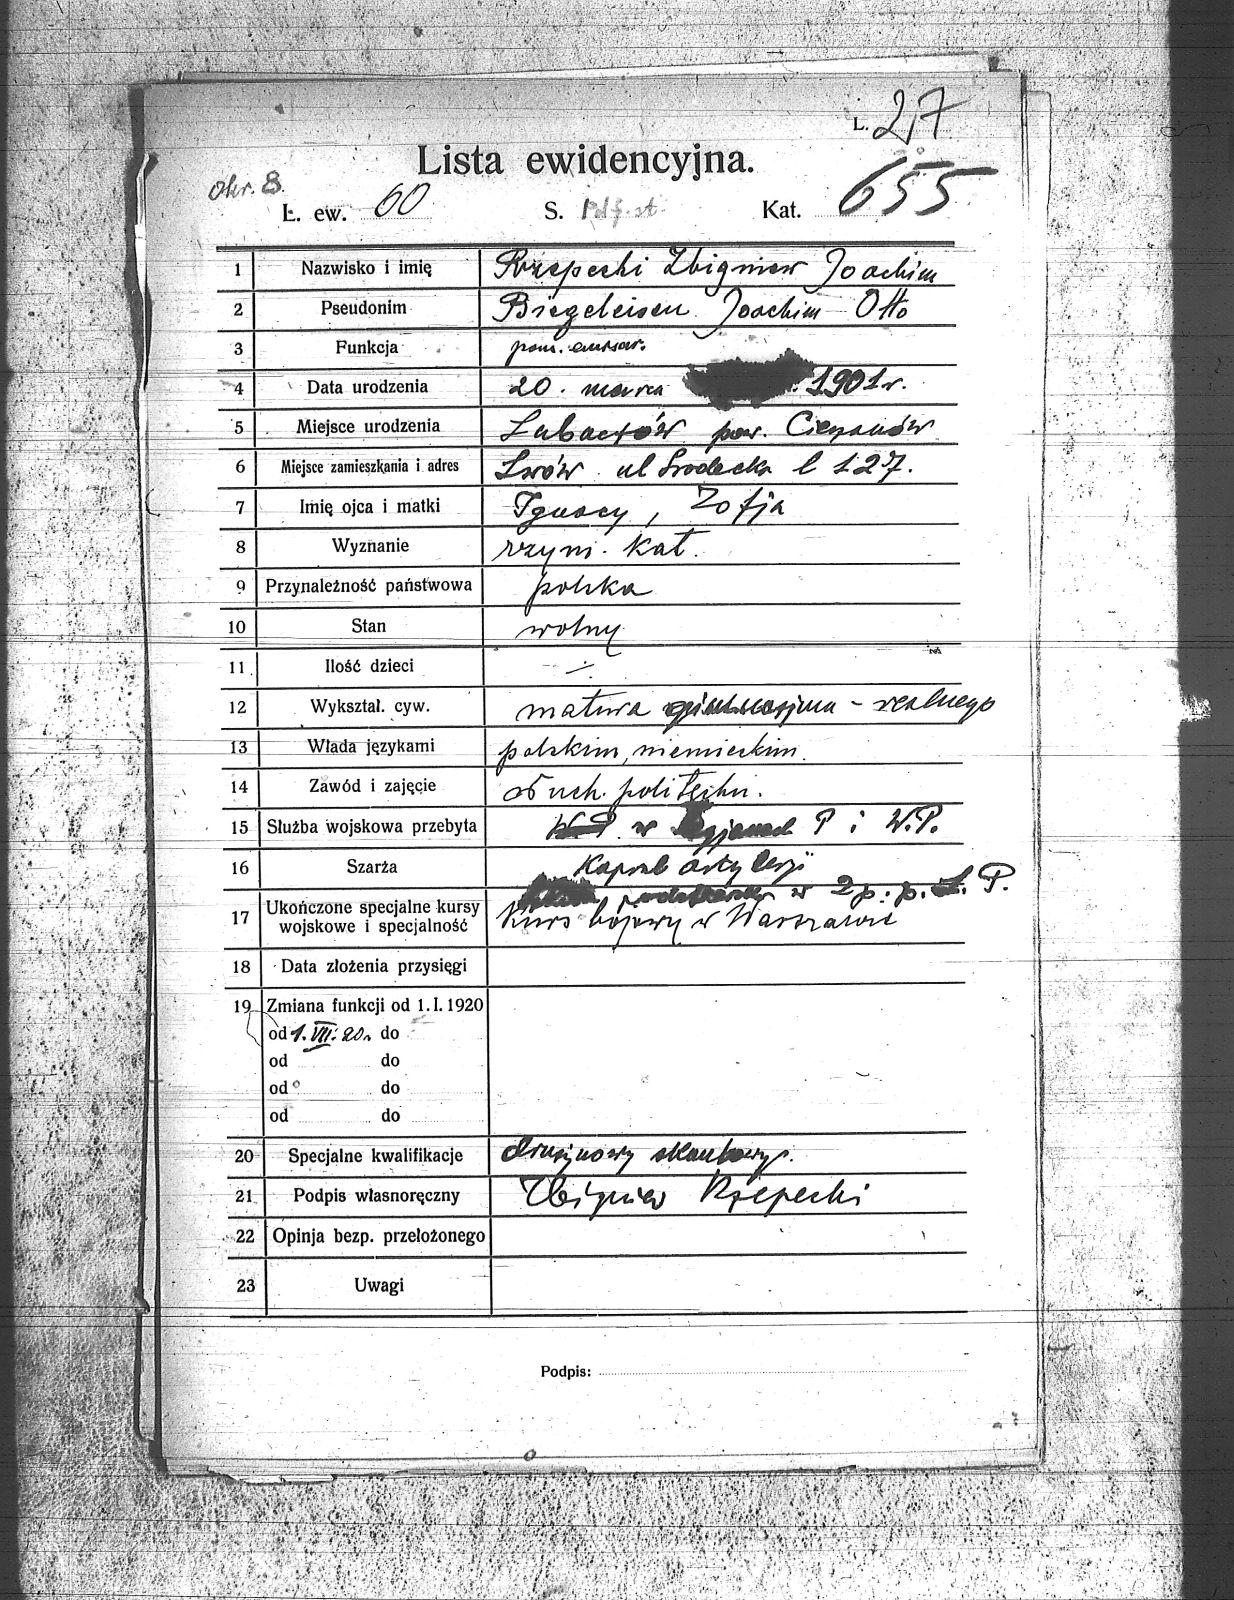 L. 217
Lista ewidencyjna.
okr. 8.
L. ew. 60 S. Kat. 655
1 Nazwisko i imię Rzepecki Zbigniew Joachim
2 Pseudonim Biegeleisen Joachim Otto
3 Funkcja pom.
4 Data urodzenia 20. marca 1901 r.
5 Miejsce urodzenia Lubaczów pow. Cieszanów
6 Miejsce zamieszkania i adres Lwów ul Grodecka l 127.
7 Imię ojca i matki Ignacy, Zofja
8 Wyznanie rzym. kat.
9 Przynależność państwowa polska
10 Stan wolny
11 Ilość dzieci
12 Wykształ. cyw. matura gimnazjum - realnego
13 Włada językami polskim, niemieckim.
14 Zawód i zajęcie słuch. politechn.
15 Służba wojskowa przebyta w Legjonach P i W.P.
16 Szarża Kapral artylerji
w 2 p. p. L. P.
17 Ukończone specjalne kursy
wojskowe i specjalność Kurs bojowy w Warszawie
18 Data złożenia przysięgi
19 Zmiana funkcji od 1. I. 1920
od 1. VII. 20. do
od do
od do
od do
20 Specjalne kwalifikacje drużynowy skautowy.
21 Podpis własnoręczny Zbigniew Rzepecki
22 Opinja bezp. przełożonego
23 Uwagi
Podpis: